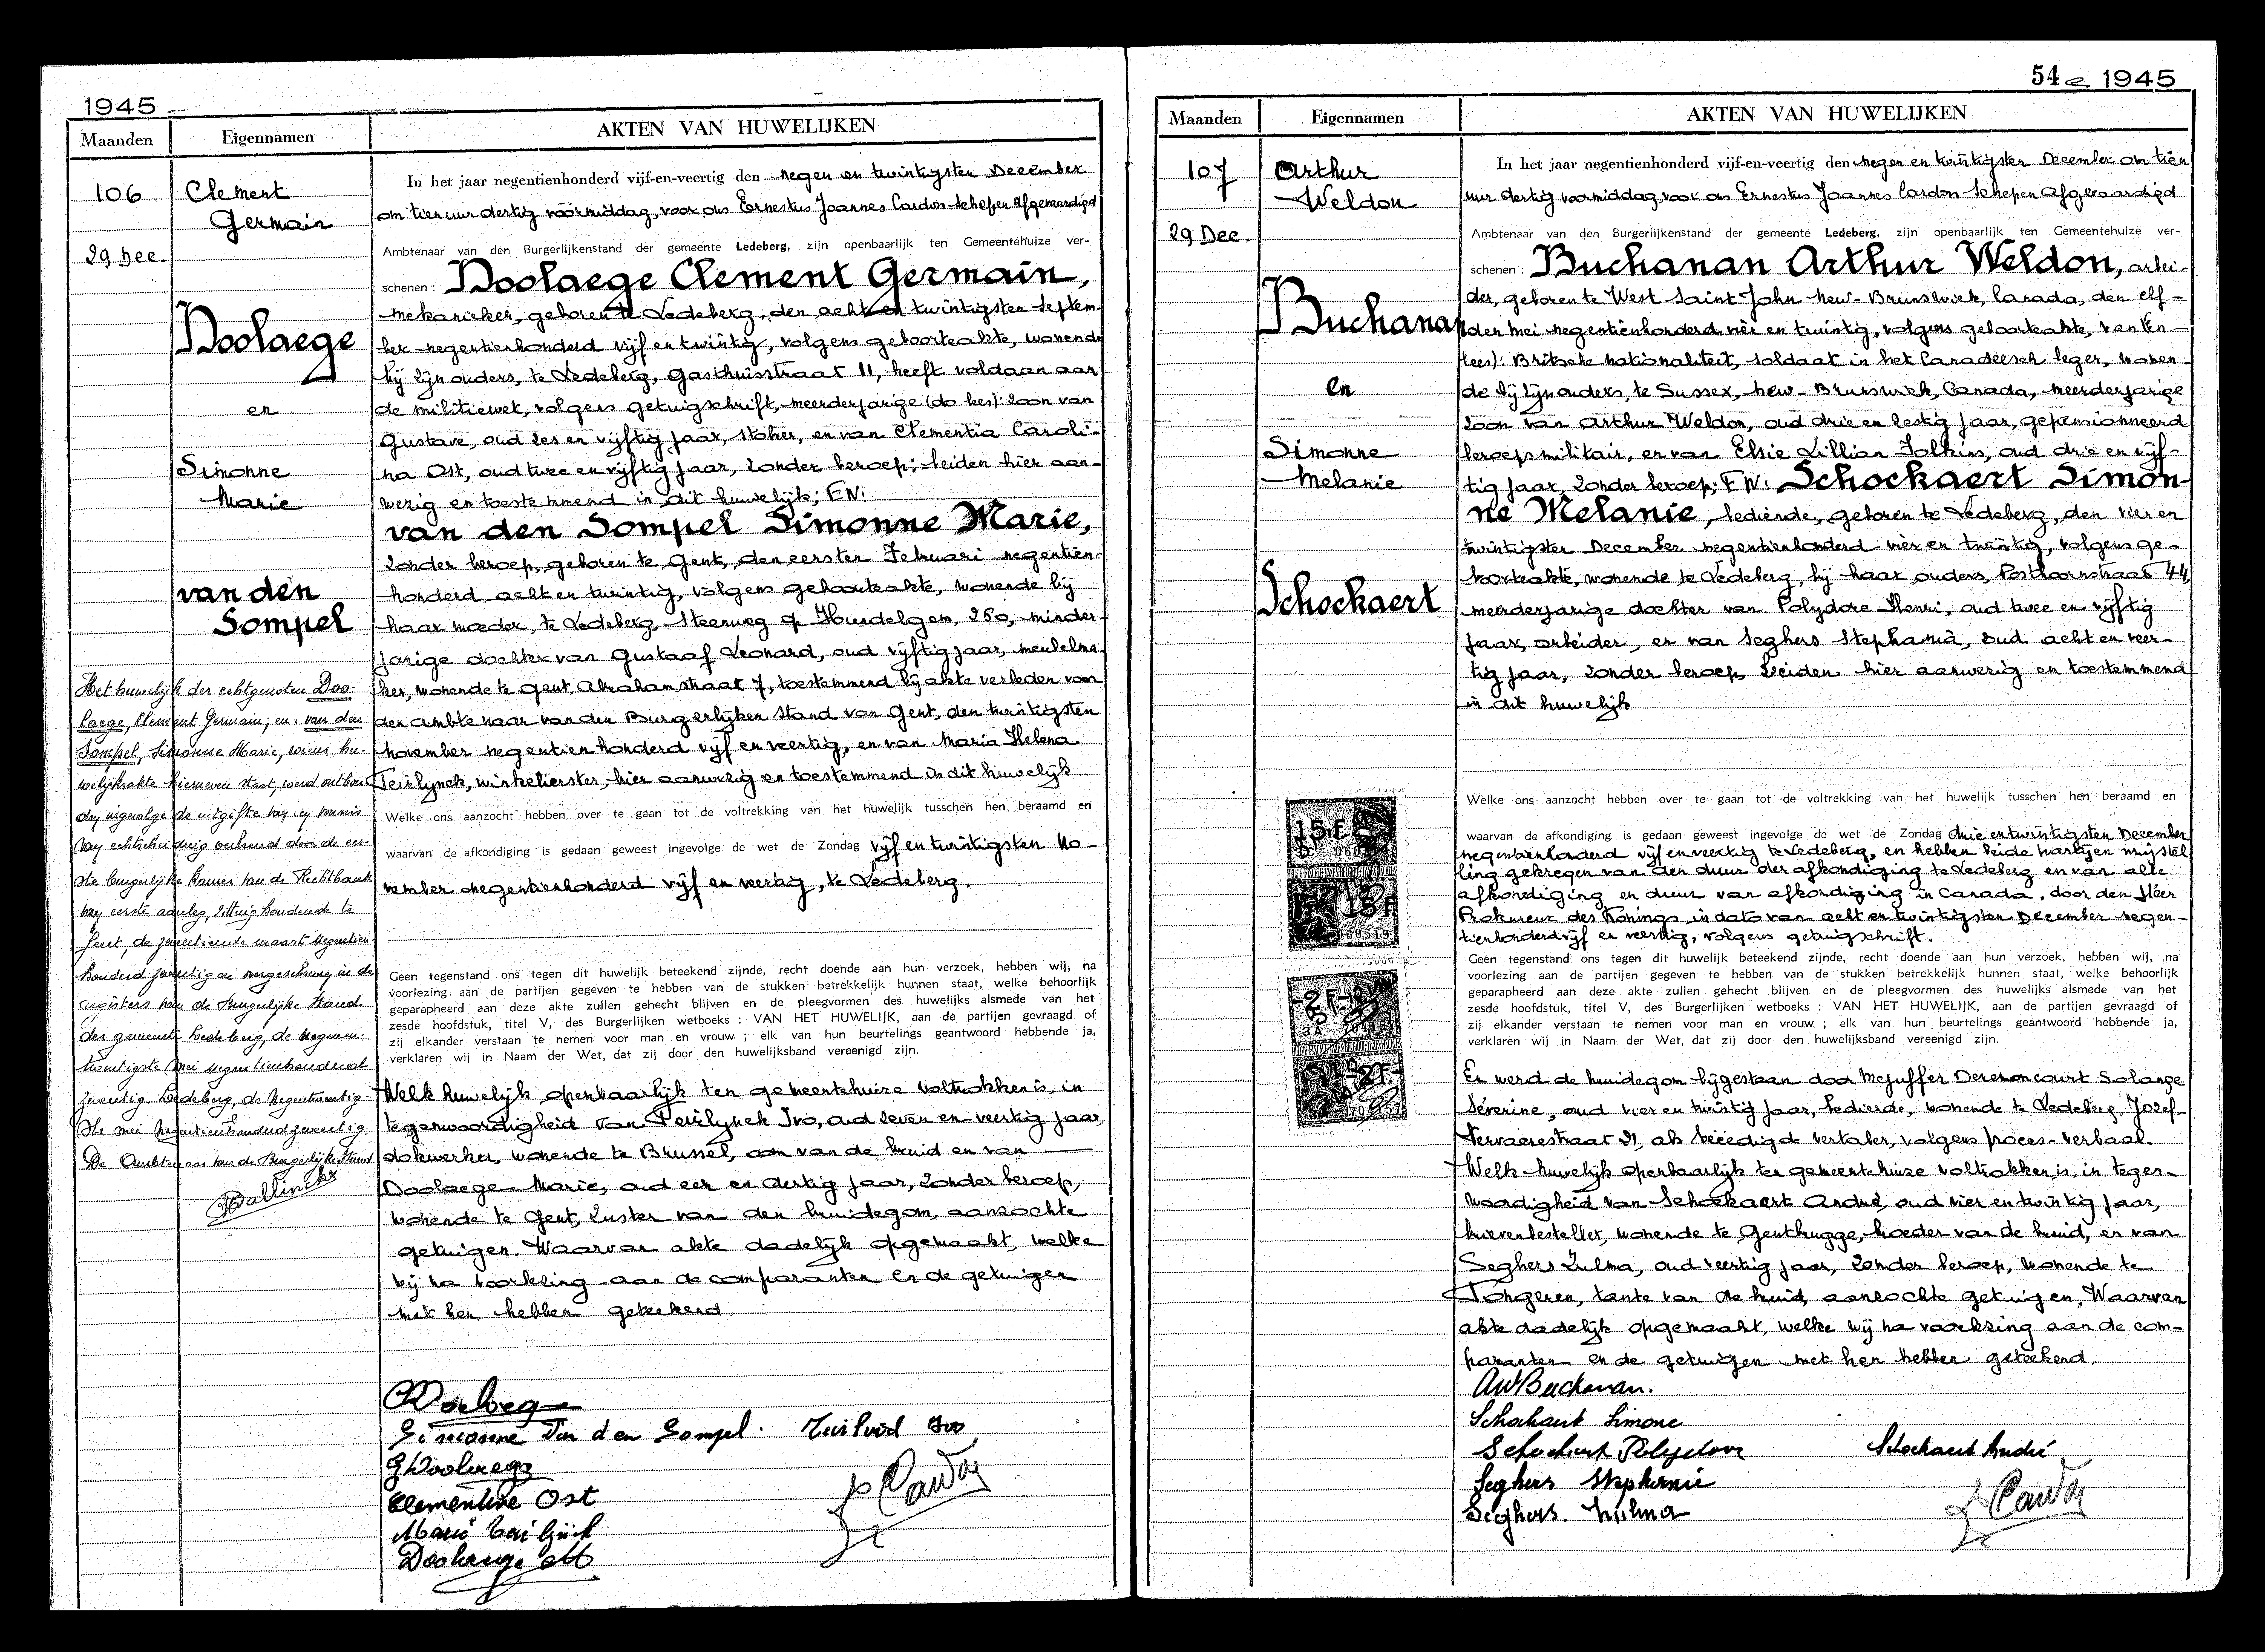 1945
Maanden
Eigennamen
AKTEN VAN HUWELIJKEN
106
29 Dec.
Clement
Germain
Doolaege
en
Simonne
Marie
van den
Sompel
Het huwelijk der echtgenoten Doo-
laege, Clement Germain; en van den
Sompel, Simonne Marie, wiens hu-
welijksakte hiernevens staat, werd ontbon-
den ingevolge de uitgifte van een vonnis
van echtscheiding verleend door de eer-
ste burgerlijke kamer van de Rechtbank
van eerste aanleg, zitting houdende te
Gent, de zeventiende maart negentien-
honderd zeventig en overgeschreven in de
registers van de Burgerlijke Stand
der gemeente Ledeberg, de negenen-
twintigste mei negentienhonderd
zeventig. Ledeberg, de negentwintig-
ste mei negentienhonderd zeventig.
De Ambtenaar van de Burgerlijke Stand
In het jaar negentienhonderd vijf-en-veertig den negen en twintigsten December
om tien uur dertig vóórmiddag, voor ons Ernestus Joannes Cardon Schepen afgevaardigd
Ambtenaar van den Burgerlijkenstand der gemeente Ledeberg, zijn openbaarlijk ten Gemeentehuize ver-
schenen : Doolaege Clement Germain,
mekanieker, geboren te Ledeberg, den acht en twintigsten Septem-
ber negentienhonderd vijf en twintig, volgens geboorteakte, wonende
bij zijn ouders, te Ledeberg, Gasthuisstraat 11, heeft voldaan aan
de militiewet, volgens getuigschrift, meerderjarige (do lees): zoon van
Gustave, oud zes en vijftig jaar, stoker, en van Clementia Caroli-
na Ost, oud twee en vijftig jaar, zonder beroep; beiden hier aan-
wezig en toestemmend in dit huwelijk; EN:
van den Sompel Simonne Marie,
zonder beroep, geboren te Gent, den eersten Februari negentien-
honderd acht en twintig, volgens geboorteakte, wonende bij
haar moeder, te Ledeberg, Steenweg op Hundelgem, 250, minder-
jarige dochter van Gustaaf Leonard, oud vijftig jaar, meubelma-
ker, wonende te Gent, Abrahamstraat 7, toestemmend bij akte verleden voor
den ambtenaar van den Burgerlijken Stand van Gent, den twintigsten
november negentien honderd vijf en veertig, en van Maria Helena
Teirlynck, winkelierster, hier aanwezig en toestemmend in dit huwelijk
Welke ons aanzocht hebben over te gaan tot de voltrekking van het huwelijk tusschen hen beraamd en
waarvan de afkondiging is gedaan geweest ingevolge de wet de Zondag vijf en twintigsten No-
vember negentienhonderd vijf en veertig, te Ledeberg.
Geen tegenstand ons tegen dit huwelijk beteekend zijnde, recht doende aan hun verzoek, hebben wij, na
voorlezing aan de partijen gegeven te hebben van de stukken betrekkelijk hunnen staat, welke behoorlijk
geparapheerd aan deze akte zullen gehecht blijven en de pleegvormen des huwelijks alsmede van het
zesde hoofdstuk, titel V, des Burgerlijken wetboeks : VAN HET HUWELIJK, aan de partijen gevraagd of
zij elkander verstaan te nemen voor man en vrouw ; elk van hun beurtelings geantwoord hebbende ja,
verklaren wij in Naam der Wet, dat zij door den huwelijksband vereenigd zijn.
Welk huwelijk openbaarlijk ten gemeentehuize voltrokken is, in
tegenwoordigheid van Teirlynck Ivo, oud zeven en veertig jaar,
dokwerker, wonende te Brussel, oom van de bruid en van
Doolaege Marie, oud een en dertig jaar, zonder beroep,
wonende te Gent, zuster van den bruidegom, aanzochte
getuigen. Waarvan akte dadelijk opgemaakt, welke
wij na voorlezing aan de comparanten en de getuigen
met hen hebben geteekend.
Simonne Van den Sompel.
G Doolaege
Clementine Ost
54 1945
Maanden
Eigennamen
AKTEN VAN HUWELIJKEN
107
29 Dec.
Arthur
Weldon
Buchanan
en
Simonne
Melanie
Schockaert
15 F
15 F
2 F
2 F
In het jaar negentienhonderd vijf-en-veertig den negen en twintigsten December om tien
uur dertig voormiddag, voor ons Ernestus Joannes Cardon Schepen afgevaardigd
Ambtenaar van den Burgerlijkenstand der gemeente Ledeberg, zijn openbaarlijk ten Gemeentehuize ver-
schenen : Buchanan Arthur Weldon, arbei-
der, geboren te West Saint John New-Brunswick, Canada, den elf-
den mei negentienhonderd vier en twintig, volgens geboorteakte, van (en
lees): Britsche nationaliteit, soldaat in het Canadeesch leger, wonen-
de bij zijn ouders, te Sussex, New-Brunswick, Canada, meerderjarige
zoon van Arthur Weldon, oud drie en zestig jaar, gepensionneerd
beroepsmilitair, en van Elsie Lillian Folkins, oud drie en vijf-
tig jaar, zonder beroep; EN: Schockaert Simon-
ne Melanie, bediende, geboren te Ledeberg, den vier en
twintigsten December negentienhonderd vier en twintig, volgens ge-
boorteakte, wonende te Ledeberg, bij haar ouders, Posthoornstraat 44,
meerderjarige dochter van Polydore Henri, oud twee en vijftig
jaar, arbeider, en van Seghers Stephania, oud acht en veer-
tig jaar, zonder beroep, beiden hier aanwezig en toestemmend
in dit huwelijk
Welke ons aanzocht hebben over te gaan tot de voltrekking van het huwelijk tusschen hen beraamd en
waarvan de afkondiging is gedaan geweest ingevolge de wet de Zondag drie en twintigsten December
negentienhonderd vijf en veertig te Ledeberg, en hebben beide partijen vrijstel-
ling gekregen van den duur der afkondiging te Ledeberg en van alle
afkondiging en duur van afkondiging in Canada, door den Heer
Prokureur des Konings in dato van acht en twintigsten December negen-
tienhonderd vijf en veertig, volgens getuigschrift.
Geen tegenstand ons tegen dit huwelijk beteekend zijnde, recht doende aan hun verzoek, hebben wij, na
voorlezing aan de partijen gegeven te hebben van de stukken betrekkelijk hunnen staat, welke behoorlijk
geparapheerd aan deze akte zullen gehecht blijven en de pleegvormen des huwelijks alsmede van het
zesde hoofdstuk, titel V, des Burgerlijken wetboeks : VAN HET HUWELIJK, aan de partijen gevraagd of
zij elkander verstaan te nemen voor man en vrouw ; elk van hun beurtelings geantwoord hebbende ja,
verklaren wij in Naam der Wet, dat zij door den huwelijksband vereenigd zijn.
Er werd de bruidegom bijgestaan door Mejuffer Derenoncourt Solange
Séverine, oud vier en twintig jaar, bediende, wonende te Ledeberg, Jozef-
Vervaenestraat 21, als beëedigd vertaler, volgens proces-verbaal.
Welk huwelijk openbaarlijk ten gemeentehuize voltrokken is, in tegen-
woordigheid van Schockaert André, oud vier en twintig jaar,
brievenbesteller, wonende te Gentbrugge, broeder van de bruid, en van
Seghers Zulma, oud veertig jaar, zonder beroep, wonende te
Tongeren, tante van de bruid, aanzochte getuigen, Waarvan
akte dadelijk opgemaakt, welke wij na voorlezing aan de com-
paranten en de getuigen met hen hebben geteekend.
AW Buchanan.
Schockaert Simone
Schockaert Polydoor
Schockaert André
Seghers Stephanie
Seghers Zulma